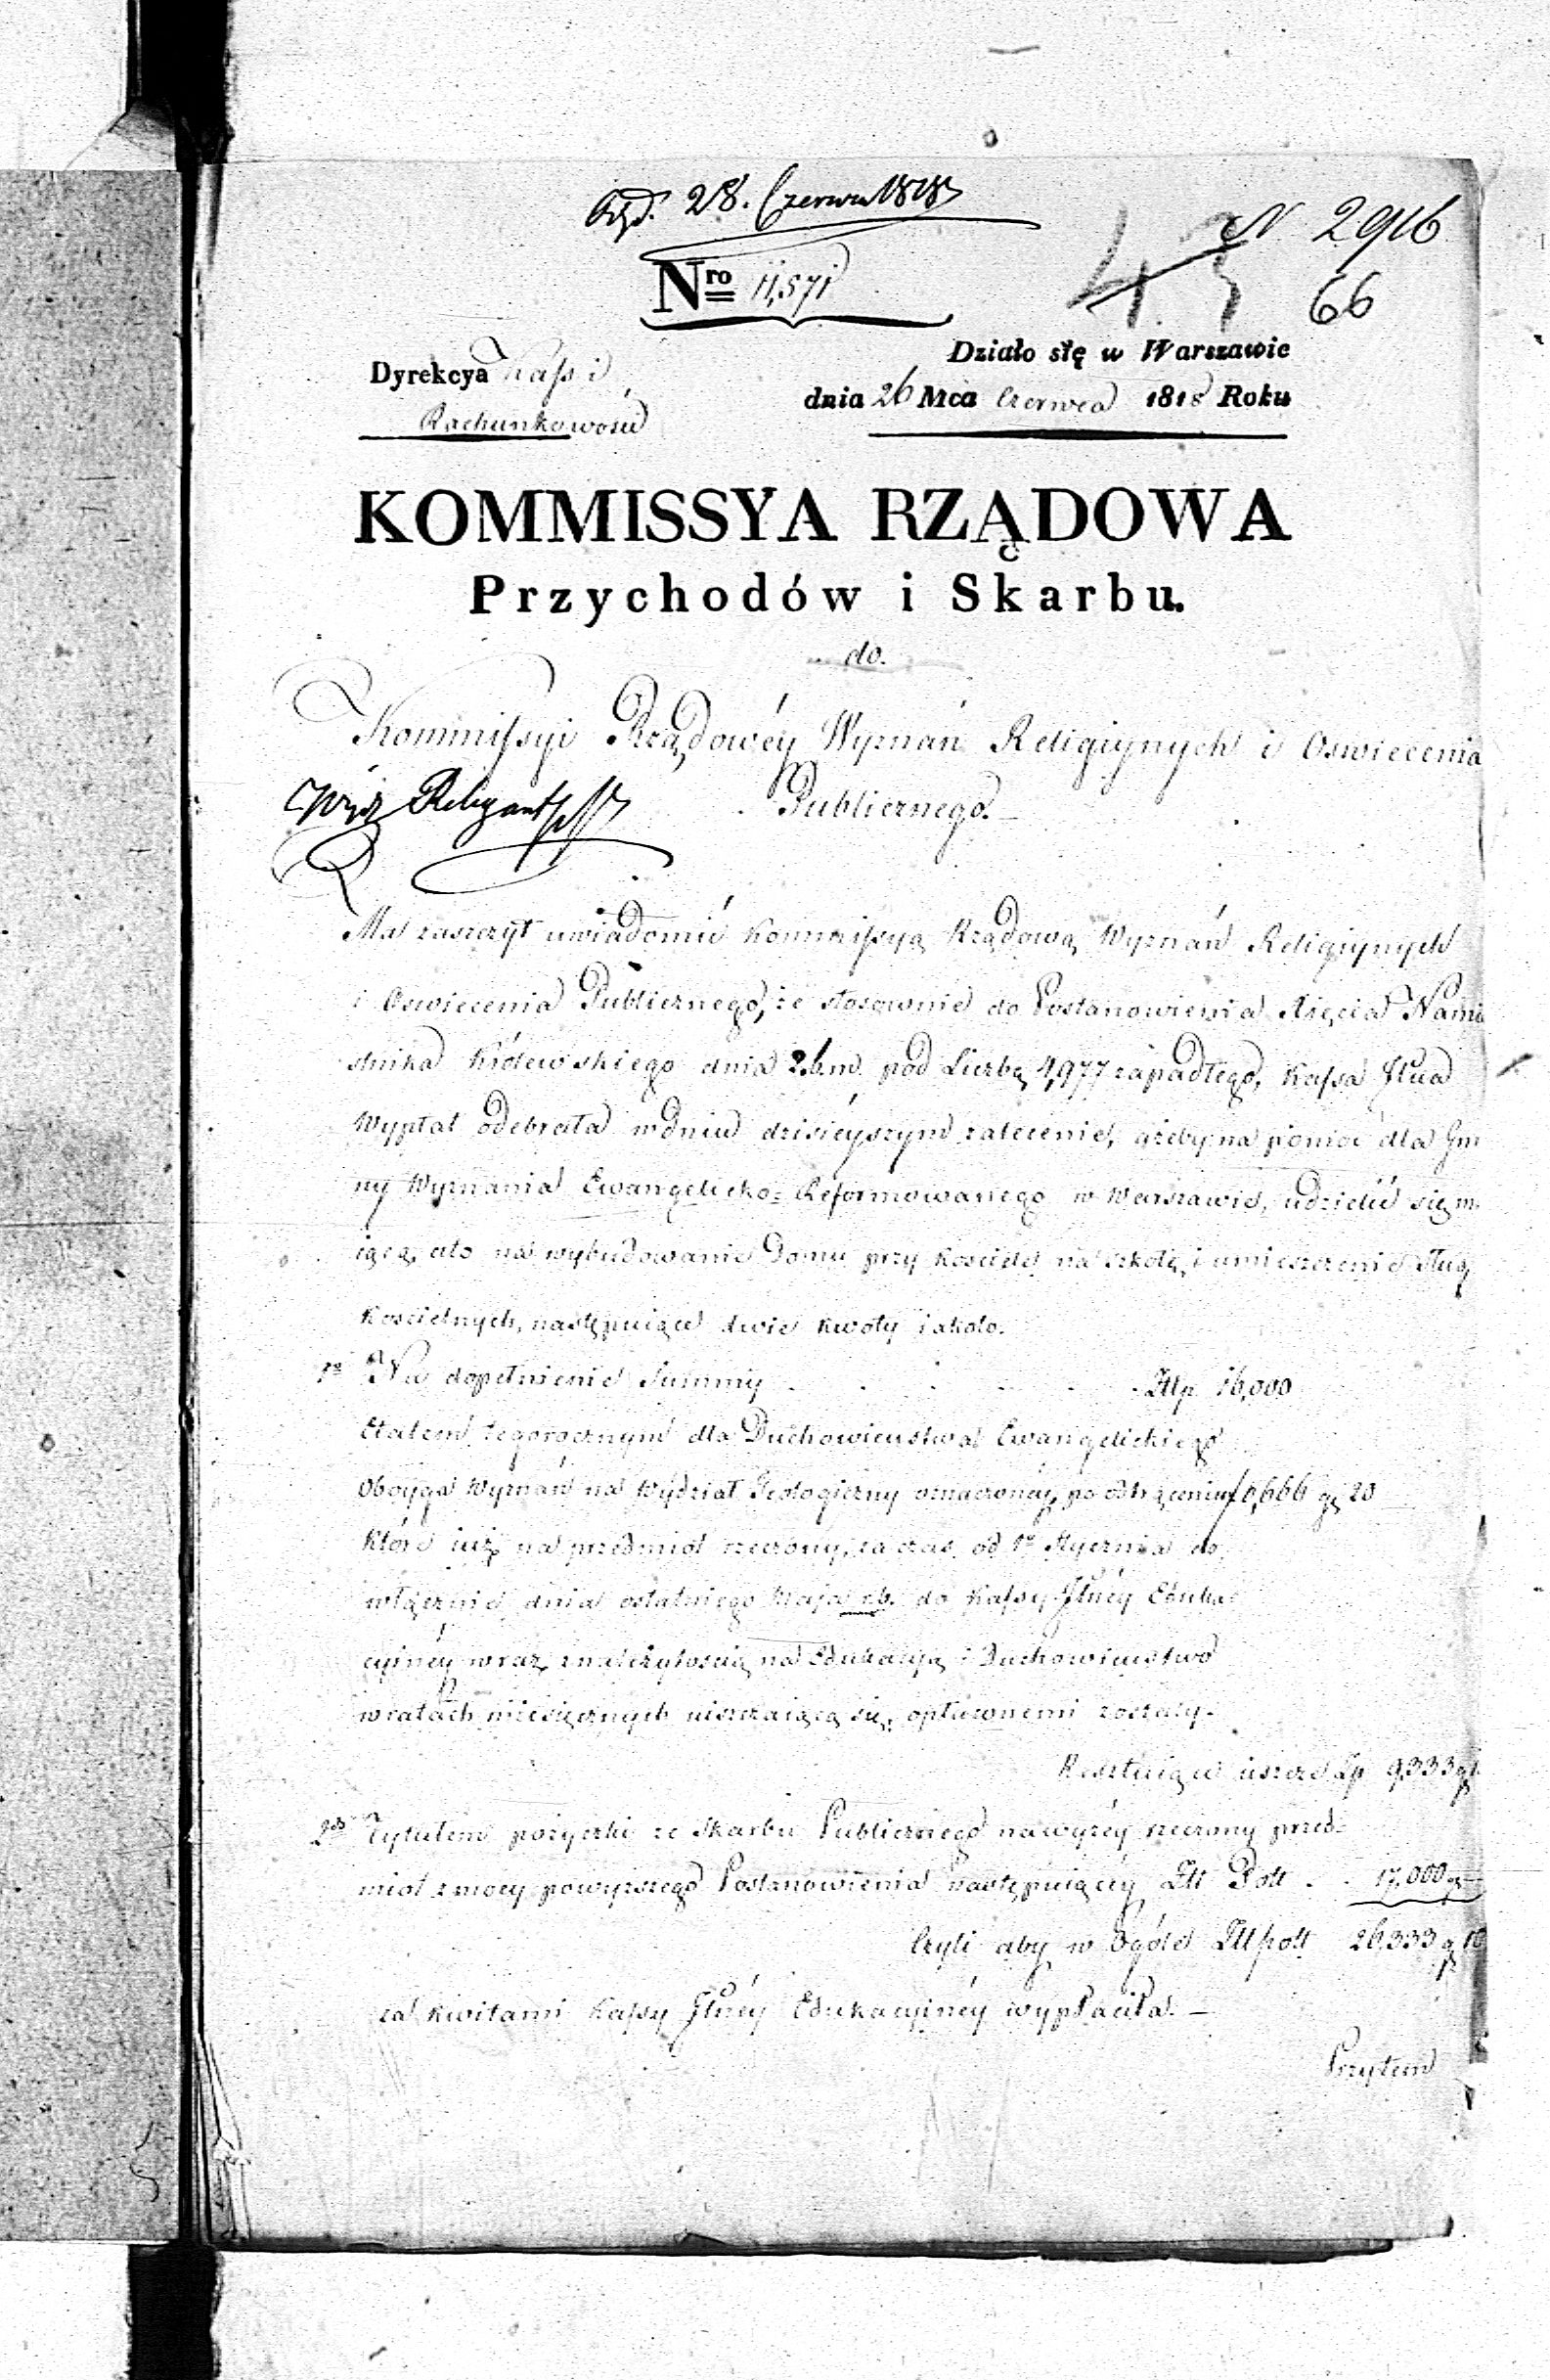 28. Czerwca 1818
N 2916
43
66
Nro 11,571
Działo się w Warszawie
Dyrekcya Kass i
dnia 26 Mca Czerwca 1818 Roku
Rachunkowości
KOMMISSYA RZĄDOWA
Przychodów i Skarbu.
do.
Kommissyi Rządowéy Wyznań Religiynych i Oswiecenia
Publicznego.
Ma zaszczyt uwiadomić Kommissyą Rządową Wyznań Religiynych
i Oswiecenia Publicznego, że stosownie do Postanowienia Xięcia Namie
stnika Królewskiego dnia pod Liczbą 4,977 zapadłego, Kassa Głna
Wypłat odebrała w dniu dzisieyszym zalecenie, ażeby na pomoc dla Gmi
ny Wyznania Ewangelicko-Reformowanego w Warszawie, udzielić się m
iącą, a to na wybudowanie Domu przy Kosciele na szkołę, i umieszczenie sług
Koscielnych, następuiące dwie kwoty iakoto.
1o Na dopełnienie Summy . . . . . Złp 16,000
Etatem tegorocznym dla Duchowieństwa Ewangelickiego
Oboyga Wyznań na Wydział Teologiczny oznaczonéy, po odtrąceniu 6,666 gr 20
które iuż na przedmiot rzeczony, za czas od 1o Stycznia do
włącznie dnia ostatniego Maja r.b. do Kassy Głnéy Eduka
cyinéy wraz z należytoscią na Edukacyą i Duchowieństwo
w ratach miesięcznych uiszczaiącą się, opłaconemi zostały.
Resztuiące ieszcze Zp 9,333 gr
2do Tytułem pożyczki ze Skarbu Publicznego na wyżéy rzeczony przed-
miot z mocy powyższego Postanowienia następuiącéy Złt Poll . . 17,000 gr —
Czyli aby w Ogóle Złlpoll 26,333 g 10
za kwitami Kassy Głnéy Edukacyinéy wypłaciła. —
Przytem